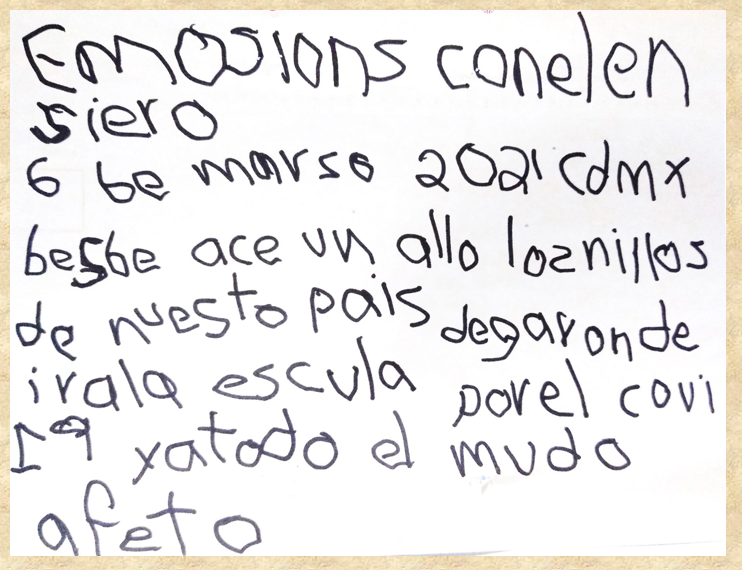 Emosions conelen
siero
6 be marso 2021 cdmx
besbe ace un allo loznillos
de nuesto pais degaronde
irala escula porel covi
19 yatodo el mudo
afeto